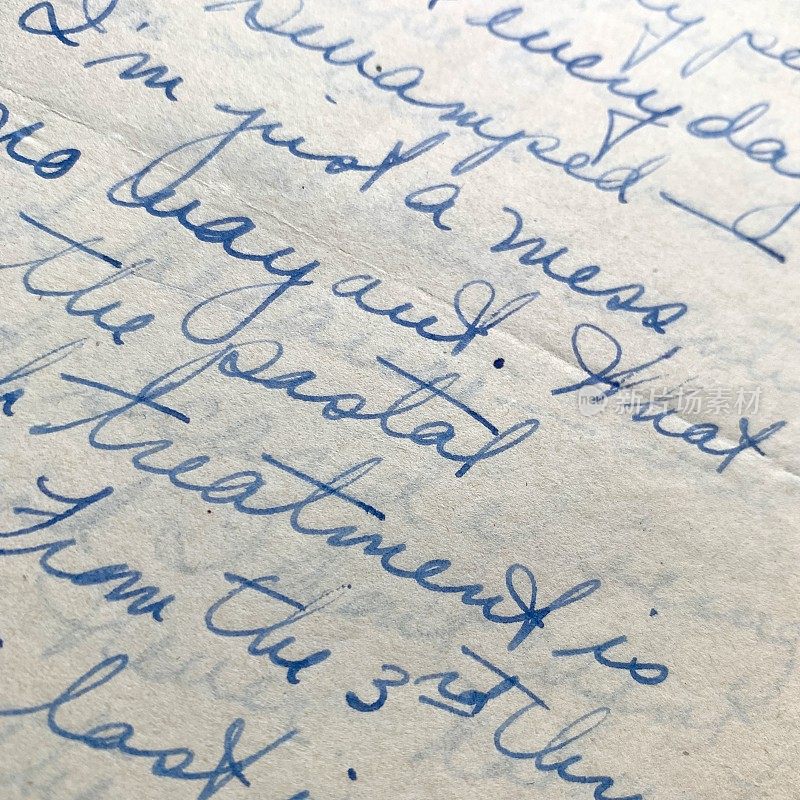 every day
swamped —
I'm just a mess
no way out. What
the postal
treatment is
From the 3rd thru
last
新片场素材